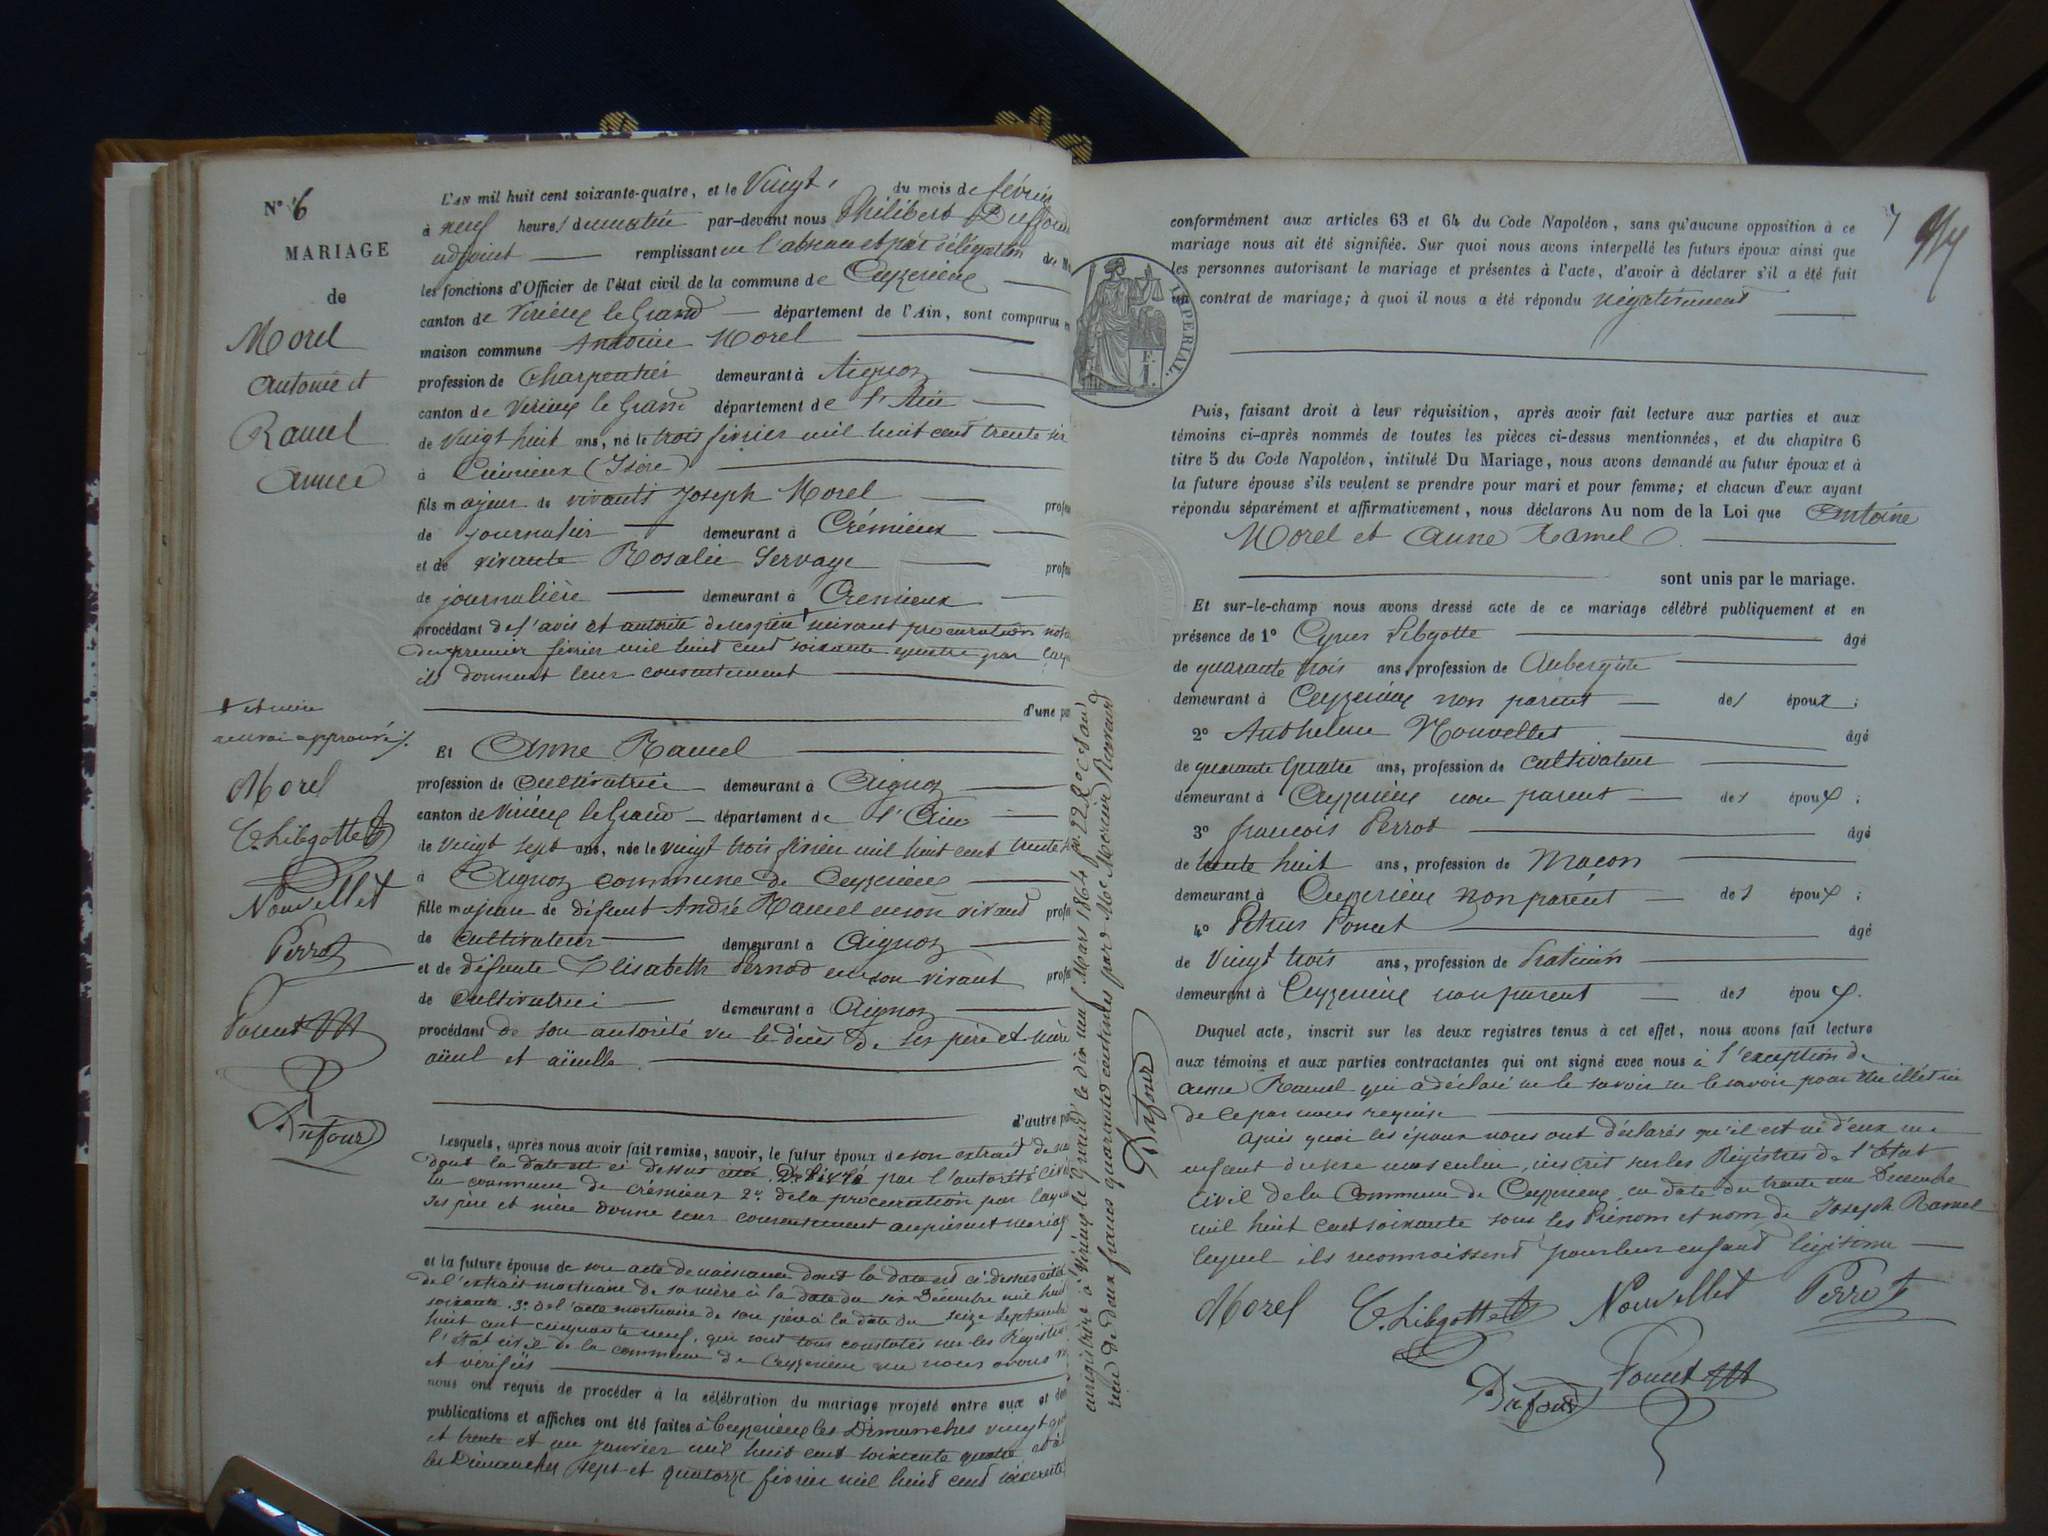 N° 6
MARIAGE
de
Morel
Antoine et
Ramel
Anne
L'AN mil huit cent soixante-quatre, et le Vingt du mois de février
à neuf heures du matin par-devant nous Philibert Duffour
adjoint remplissant en l'absence et par délégation du M
les fonctions d'Officier de l'état civil de la commune de Ceyzerieux
canton de Virieux le Grand département de l'Ain, sont comparus en
maison commune Antoine Morel
profession de Charpentier demeurant à Aignoz
canton de Virieux le Grand département de l'Ain
de Vingt huit ans, né le trois février mil huit cent trente six
à Crémieux (Isère)
fils majeur de vivants Joseph Morel profes
de journalier demeurant à Crémieux
et de vivante Rosalie Servage profes
de journalière demeurant à Crémieux
procédant de l'avis et autorité de ses père suivant procuration not
du premier février mil huit cent soixante quatre par laqu
ils donnent leur consentement
d'une pa
+ et mère
renvoi approuvé
Et Anne Ramel
profession de Cultivatrice demeurant à Aignoz
canton de Virieux le Grand département de l'Ain
de Vingt sept ans, née le vingt trois février mil huit cent trente
à Aignoz commune de Ceyzerieux
fille majeure de défunt André Ramel en son vivant profes
de Cultivateur demeurant à Aignoz
et de défunte Elisabeth Pernod en son vivant profes
de Cultivatrice demeurant à Aignoz
procédant de son autorité vu le décès de ses père et mère
aïeul et aïeulle
d'autre pa
Morel
C. Libgotte
Nouvellet
Perrot
Poncet
Dufour
Lesquels, après nous avoir fait remise, savoir, le futur époux de son extrait de
dont la date est ci dessus Délivré par l'autorité civi
la commune de crémieux 2° de la procuration par laquel
ses père et mère donne leur consentement au présent mariage
et la future épouse de son acte de naissance dont la date est ci-dessus citée
de l'extrait mortuaire de sa mère à la date du six Décembre mil huit
soixante 3° de l'acte mortuaire de son père à la date du seize Septembre
huit cent cinquante neuf, qui sont tous constatés sur les Registres
l'état civil de la commune de Ceyzerieu que nous avons
et vérifiés
nous ont requis de procéder à la célébration du mariage projeté entre eux et don
publications et affiches ont été faites à Ceyzerieux les Dimanches vingt
et trente et un janvier mil huit cent soixante quatre et à
les Dimanches sept et quatorze février mil huit cent soixante
enregistré à Virieux le Grand le dix neuf Mars 1864
reçu de deux francs quarante centimes
Dufour
7
conformément aux articles 63 et 64 du Code Napoléon, sans qu'aucune opposition à ce
mariage nous ait été signifiée. Sur quoi nous avons interpellé les futurs époux ainsi que
les personnes autorisant le mariage et présentes à l'acte, d'avoir à déclarer s'il a été fait
un contrat de mariage; à quoi il nous a été répondu négativement
IMPERIAL.
F.
1.
Puis, faisant droit à leur réquisition, après avoir fait lecture aux parties et aux
témoins ci-après nommés de toutes les pièces ci-dessus mentionnées, et du chapitre 6
titre 5 du Code Napoléon, intitulé Du Mariage, nous avons demandé au futur époux et à
la future épouse s'ils veulent se prendre pour mari et pour femme; et chacun d'eux ayant
répondu séparément et affirmativement, nous déclarons Au nom de la Loi que Antoine
Morel et Anne Ramel
sont unis par le mariage.
Et sur-le-champ nous avons dressé acte de ce mariage célébré publiquement et en
présence de 1° Cyrus Libgotte âgé
de quarante trois ans, profession de Aubergiste
demeurant à Ceyzerieux non parent des époux;
2° Anthelme Nouvellet âgé
de quarante quatre ans, profession de cultivateur
demeurant à Ceyzerieux non parent des époux;
3° françois Perrot âgé
de trente huit ans, profession de Macon
demeurant à Ceyzerieux non parent des époux;
4° Petrus Poncet âgé
de Vingt trois ans, profession de Praticien
demeurant à Ceyzerieux non parent des époux.
Duquel acte, inscrit sur les deux registres tenus à cet effet, nous avons fait lecture
aux témoins et aux parties contractantes qui ont signé avec nous à l'exception de
anne Ramel qui a déclaré ne le savoir pour être illétrée
de ce par nous requise
Après quoi les époux nous ont déclarés qu'il est né d'eux un
enfant du sexe masculin, inscrit sur les Registres de l'Etat
Civil de la Commune de Ceyzerieux en date du trente un Décembre
mil huit cent soixante sous les Prénom et nom de Joseph Ramel
lequel ils reconnaissent pour leur enfant légitime
Morel C. Libgotte Nouvellet Perrot
Poncet
Dufour